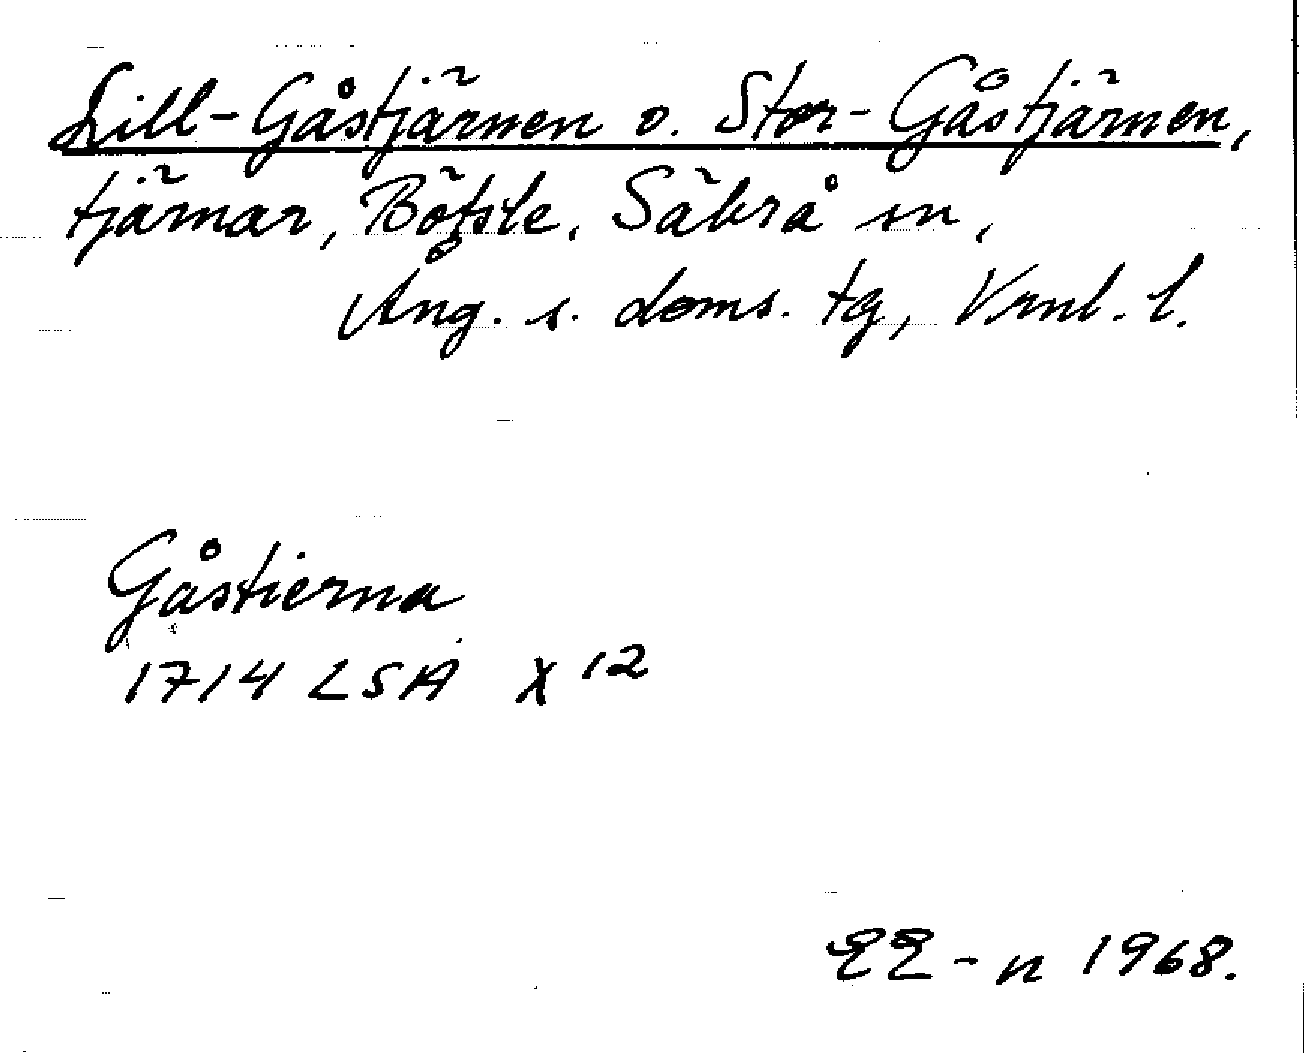 Lill-Gåstjärnen o. Stor-Gåstjärnen,
tjärnar, Bölsle, Säbrå sn,
Ång. s. doms. tg, Vrnl. l.
Gåstierna
1714 LSA X 12
EE-n 1968.